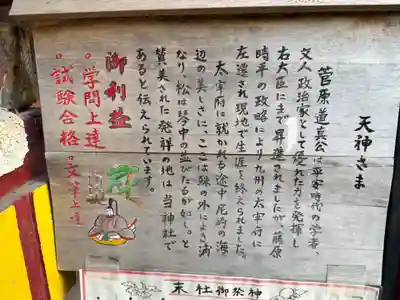 天神さま
菅原道真公は平安時代の学者、
文人政治家として優れた力を発揮し
右大臣にまで昇進されましたが藤原
時平の政略により九州の太宰府に
左遷され現地で生涯を終えられました。
太宰府に赴かれる途中尼崎の海
辺の美しさに、ここは殊の外によき浦
なり、松は琴中の並びたるが如し。と
賛美された発祥の地は当神社で
あると伝えられています。
御利益
学問上達
試験合格
文筆上達
末社御祭神